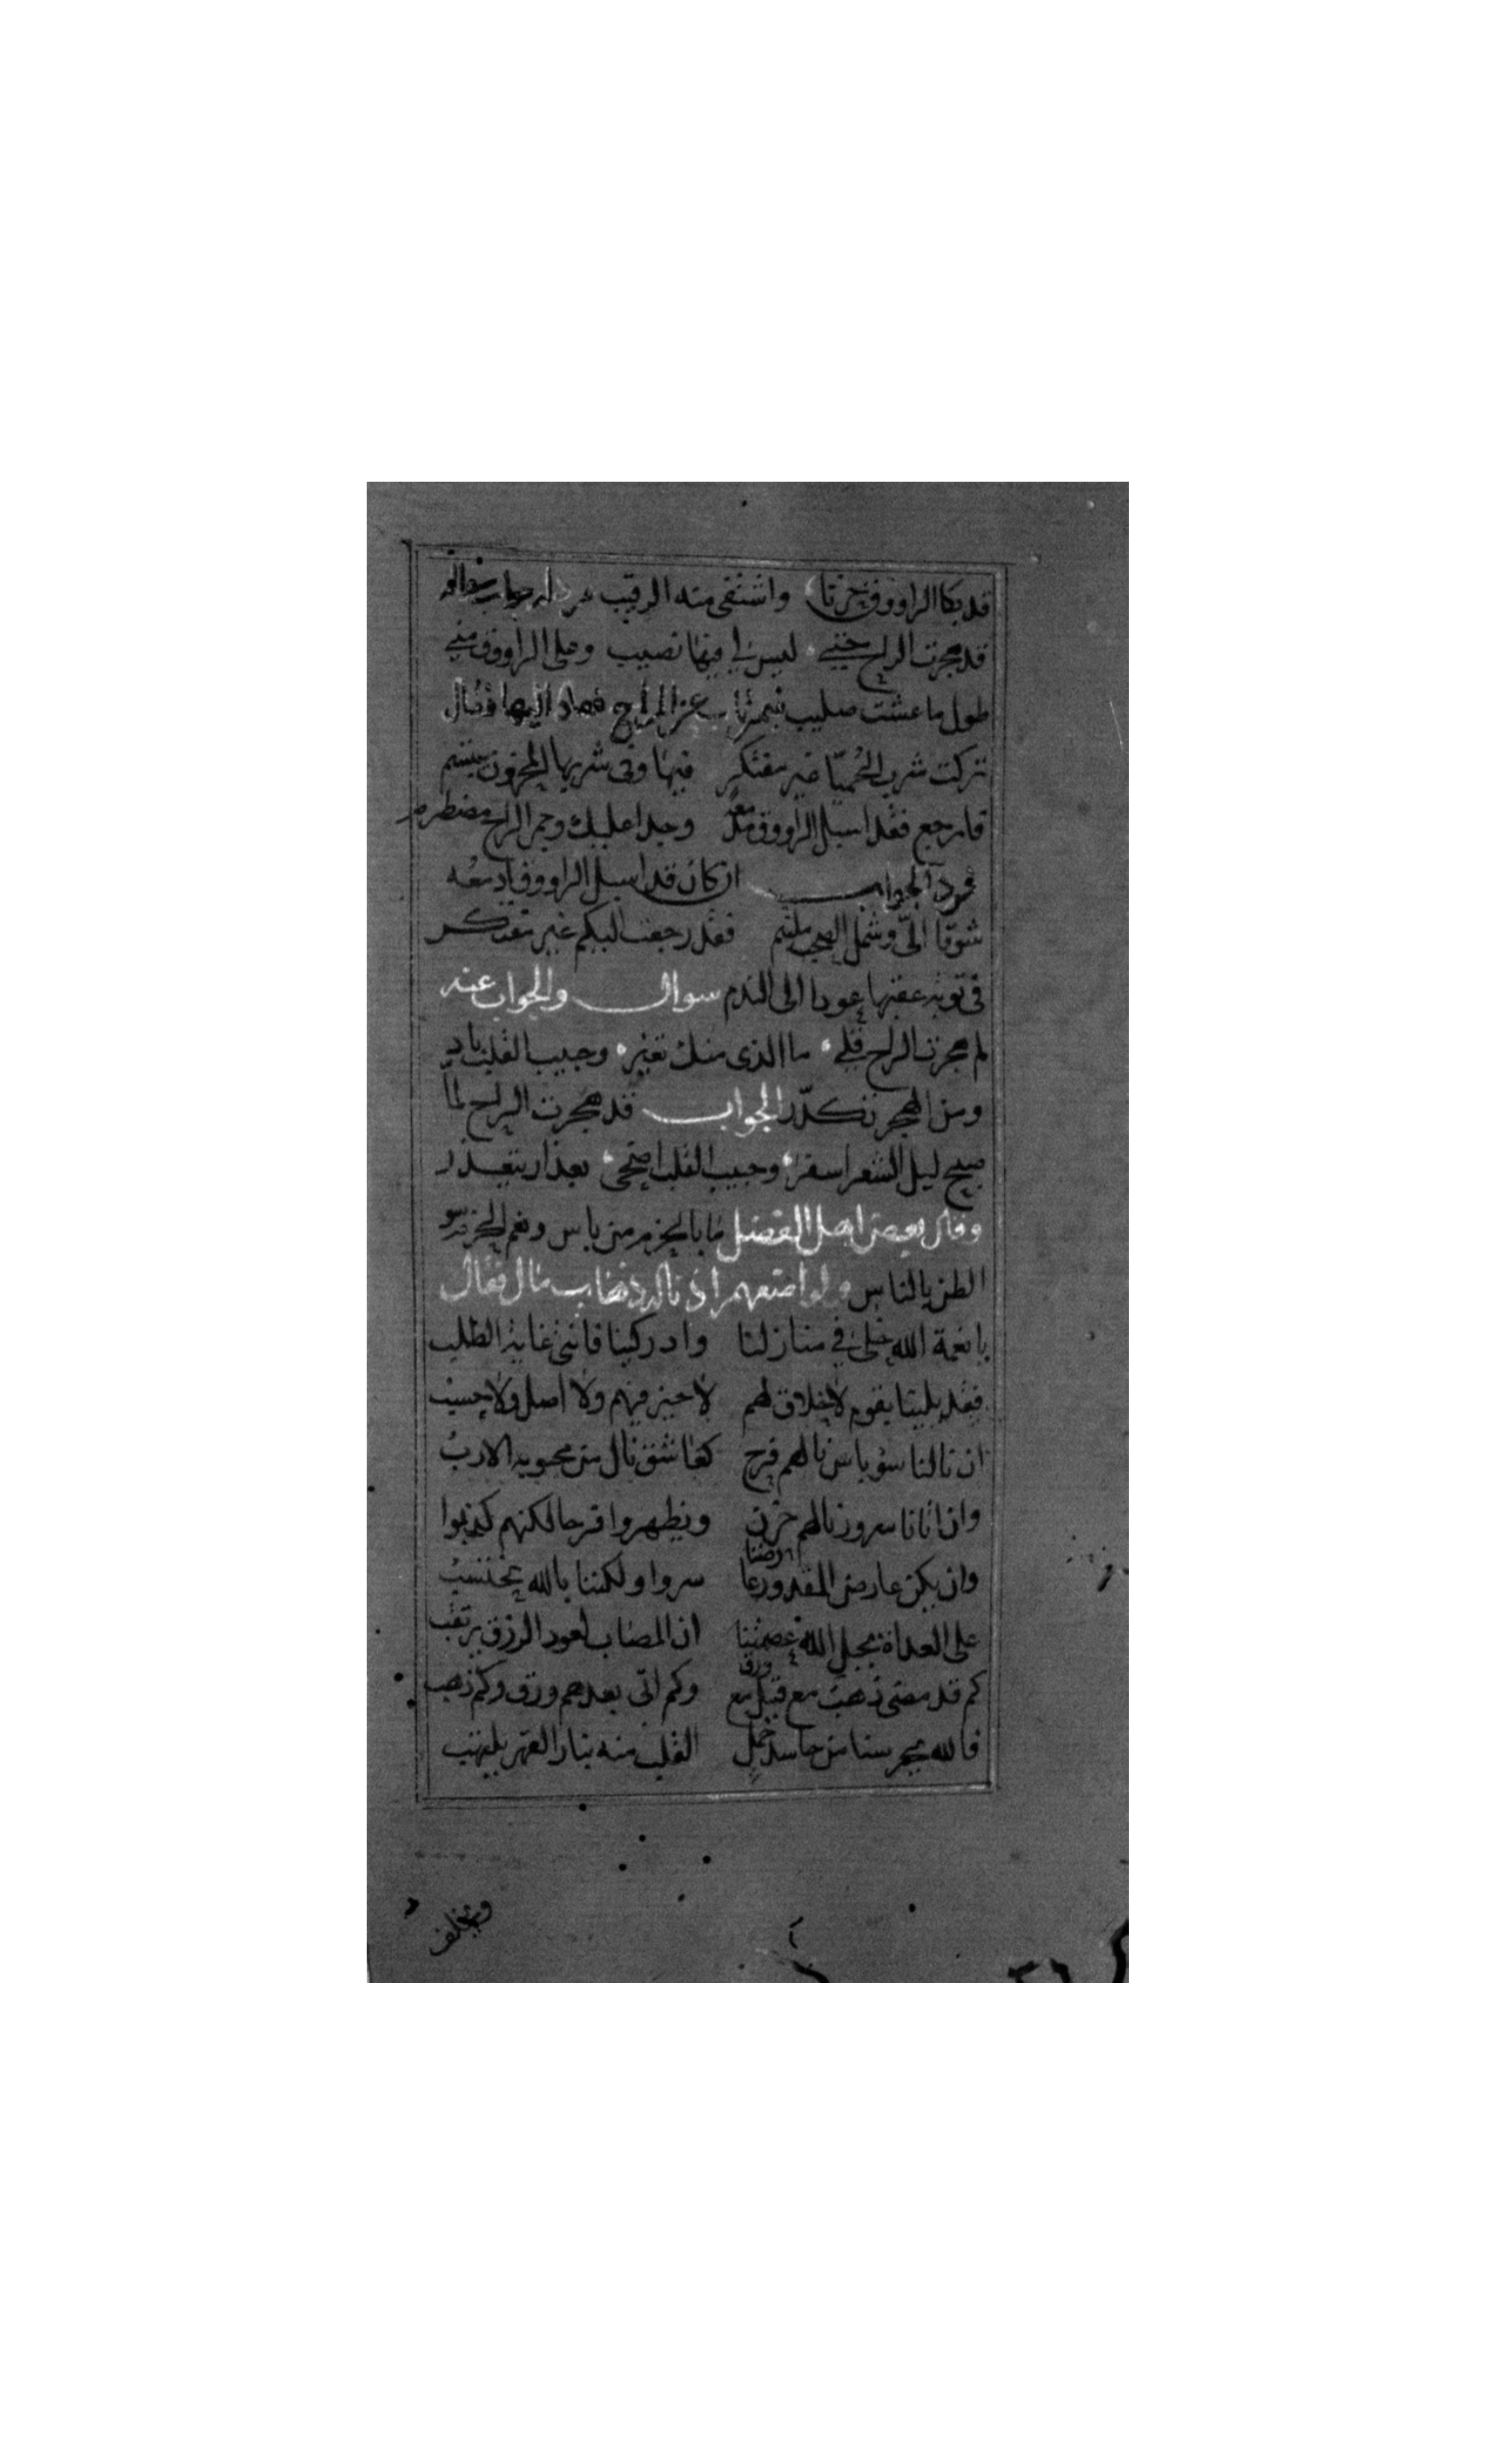 قد بكا الراووق حزنا واشتفى منه الرقيب
قد هجرت الراح حتى ليس لي فيها نصيب وعلى الراووق مني
طول ما عشت صليب عن الراح فعاد اليها وقال
تركت شرب الحُميّا غير مفتكر فيها وفى شربها المحزون يبتسم
فارجع فقد اسبل الراووق مدمعه وجدا عليك وجمر الراح مضطرم
فرد الجواب ان كان قد اسبل الراووق ادمعه
شوقا الىّ وشمل الصحب ملتئم فقد رجعت اليكم غير مفتكر
فى توبة عقبها عودا الى الندم سوال والجواب عنه
لم هجرت الراح قلي ما الذى منك تغير وحبيب القلب باد
ومن الهجر تكدّر الجواب قد هجرت الراح لمّا
صبح ليل الشعر اسفر وحبيب القلب اضحى بعذار يتعذر
وقال بعض اهل الفضل ما بالحزم من باس ونعم الحزم سو
الظن بالناس مال فقال
يا نعمة الله حلى في منازلنا وادركينا فانتى غاية الطلب
فقد بلينا بقوم لا خلاق لهم لا خير فيهم ولا اصل ولا حسب
ان نالنا سؤ باس نالهم فرح كعاشق نال من محبوبه الارب
وان اتانا سرور نالهم حزن ويظهروا فرحا لكنهم كذبوا
وان يكن عارض المقدور عارضنا سروا ولكننا بالله نحتسب
على العداة بحبل الله عصمتنا ان المصاب لعود الرزق يرتقب
كم قد مضى ذهب مع قبل مع ورق وكم اتى بعدهم ورق وكم ذهب
فالله يحرسنا من حاسد القلب منه بنار القهر يلتهب